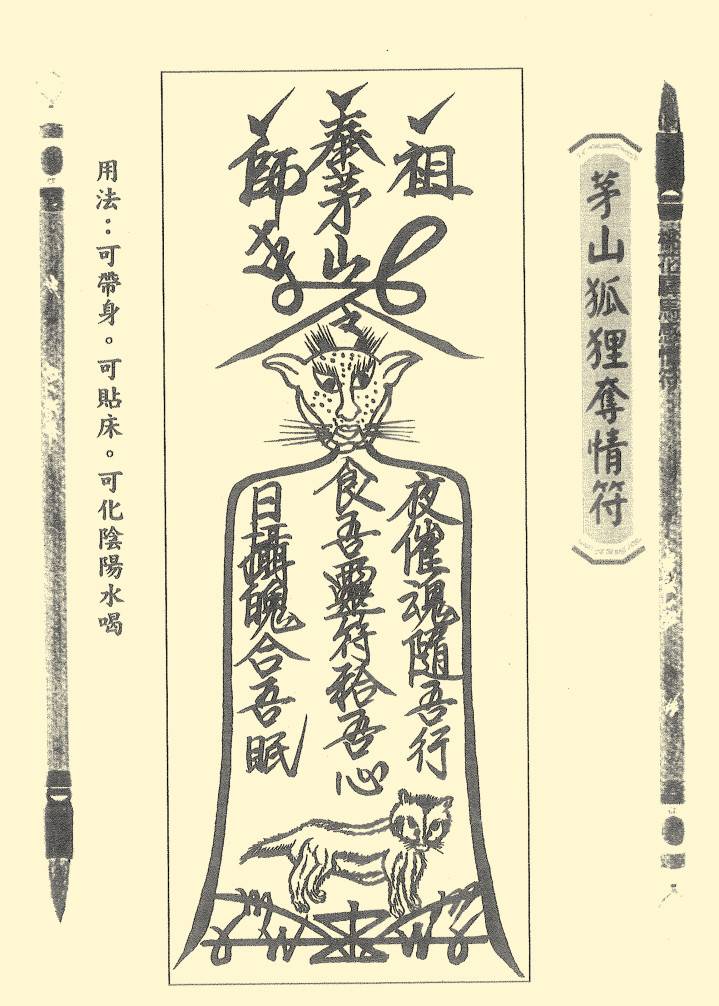 桃花驛馬感情符
茅山狐狸奪情符
祖
奉茅山
師
令
夜催魂隨吾行
食吾靈符秴吾心
日攝魄合吾眠
用法：可帶身。可貼床。可化陰陽水喝